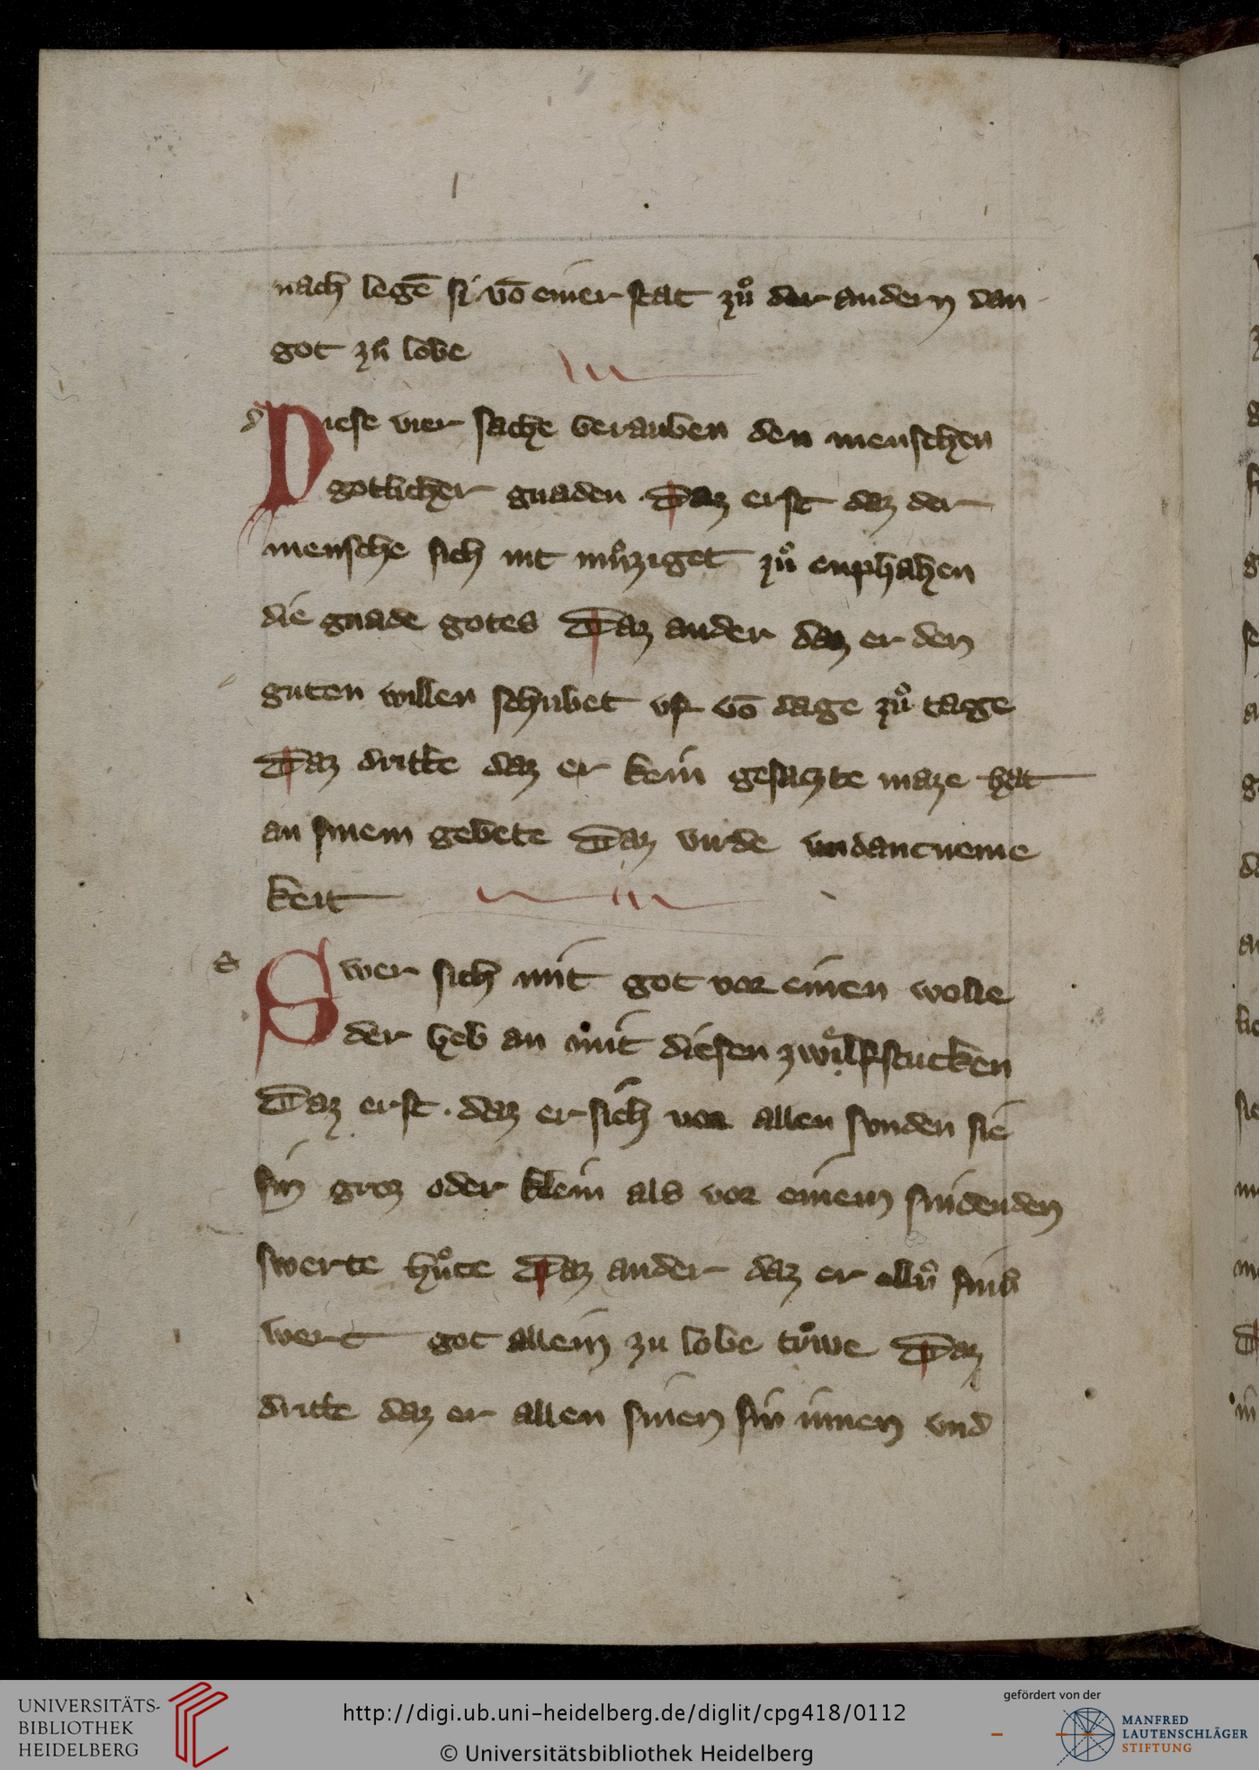 nach legē si vō einer stat zuͦ der andern dan
got zuͦ lobe
d
Diese vier sache berauben den menschen
gotlicher gnaden . Daz erst daz der
mensche sich nit muͦziget zuͦ enphahen
die gnade gotes Daz ander daz er den
guten willen schubet uf vō dage zuͦ tage
Daz dritte daz er kein gesaczte maze hat
an sinem gebete Daz virde undancneme
keit
s
Swer sich mit got vor einen wolle
der heb an mit diesen zwoͤlf stucken
Daz erst . daz er sich vor allen sunden sie
sin groz oder klein als vor einem snidenden
swerte huͦte Daz ander daz er sinh
wert got allein zu lobe tuͦwe Daz
dritte daz er allen sinen sin innen und
UNIVERSITÄTS-
BIBLIOTHEK
HEIDELBERG
http://digi.ub.uni-heidelberg.de/diglit/cpg418/0112
© Universitätsbibliothek Heidelberg
gefördert von der
MANFRED
LAUTENSCHLÄGER
STIFTUNG